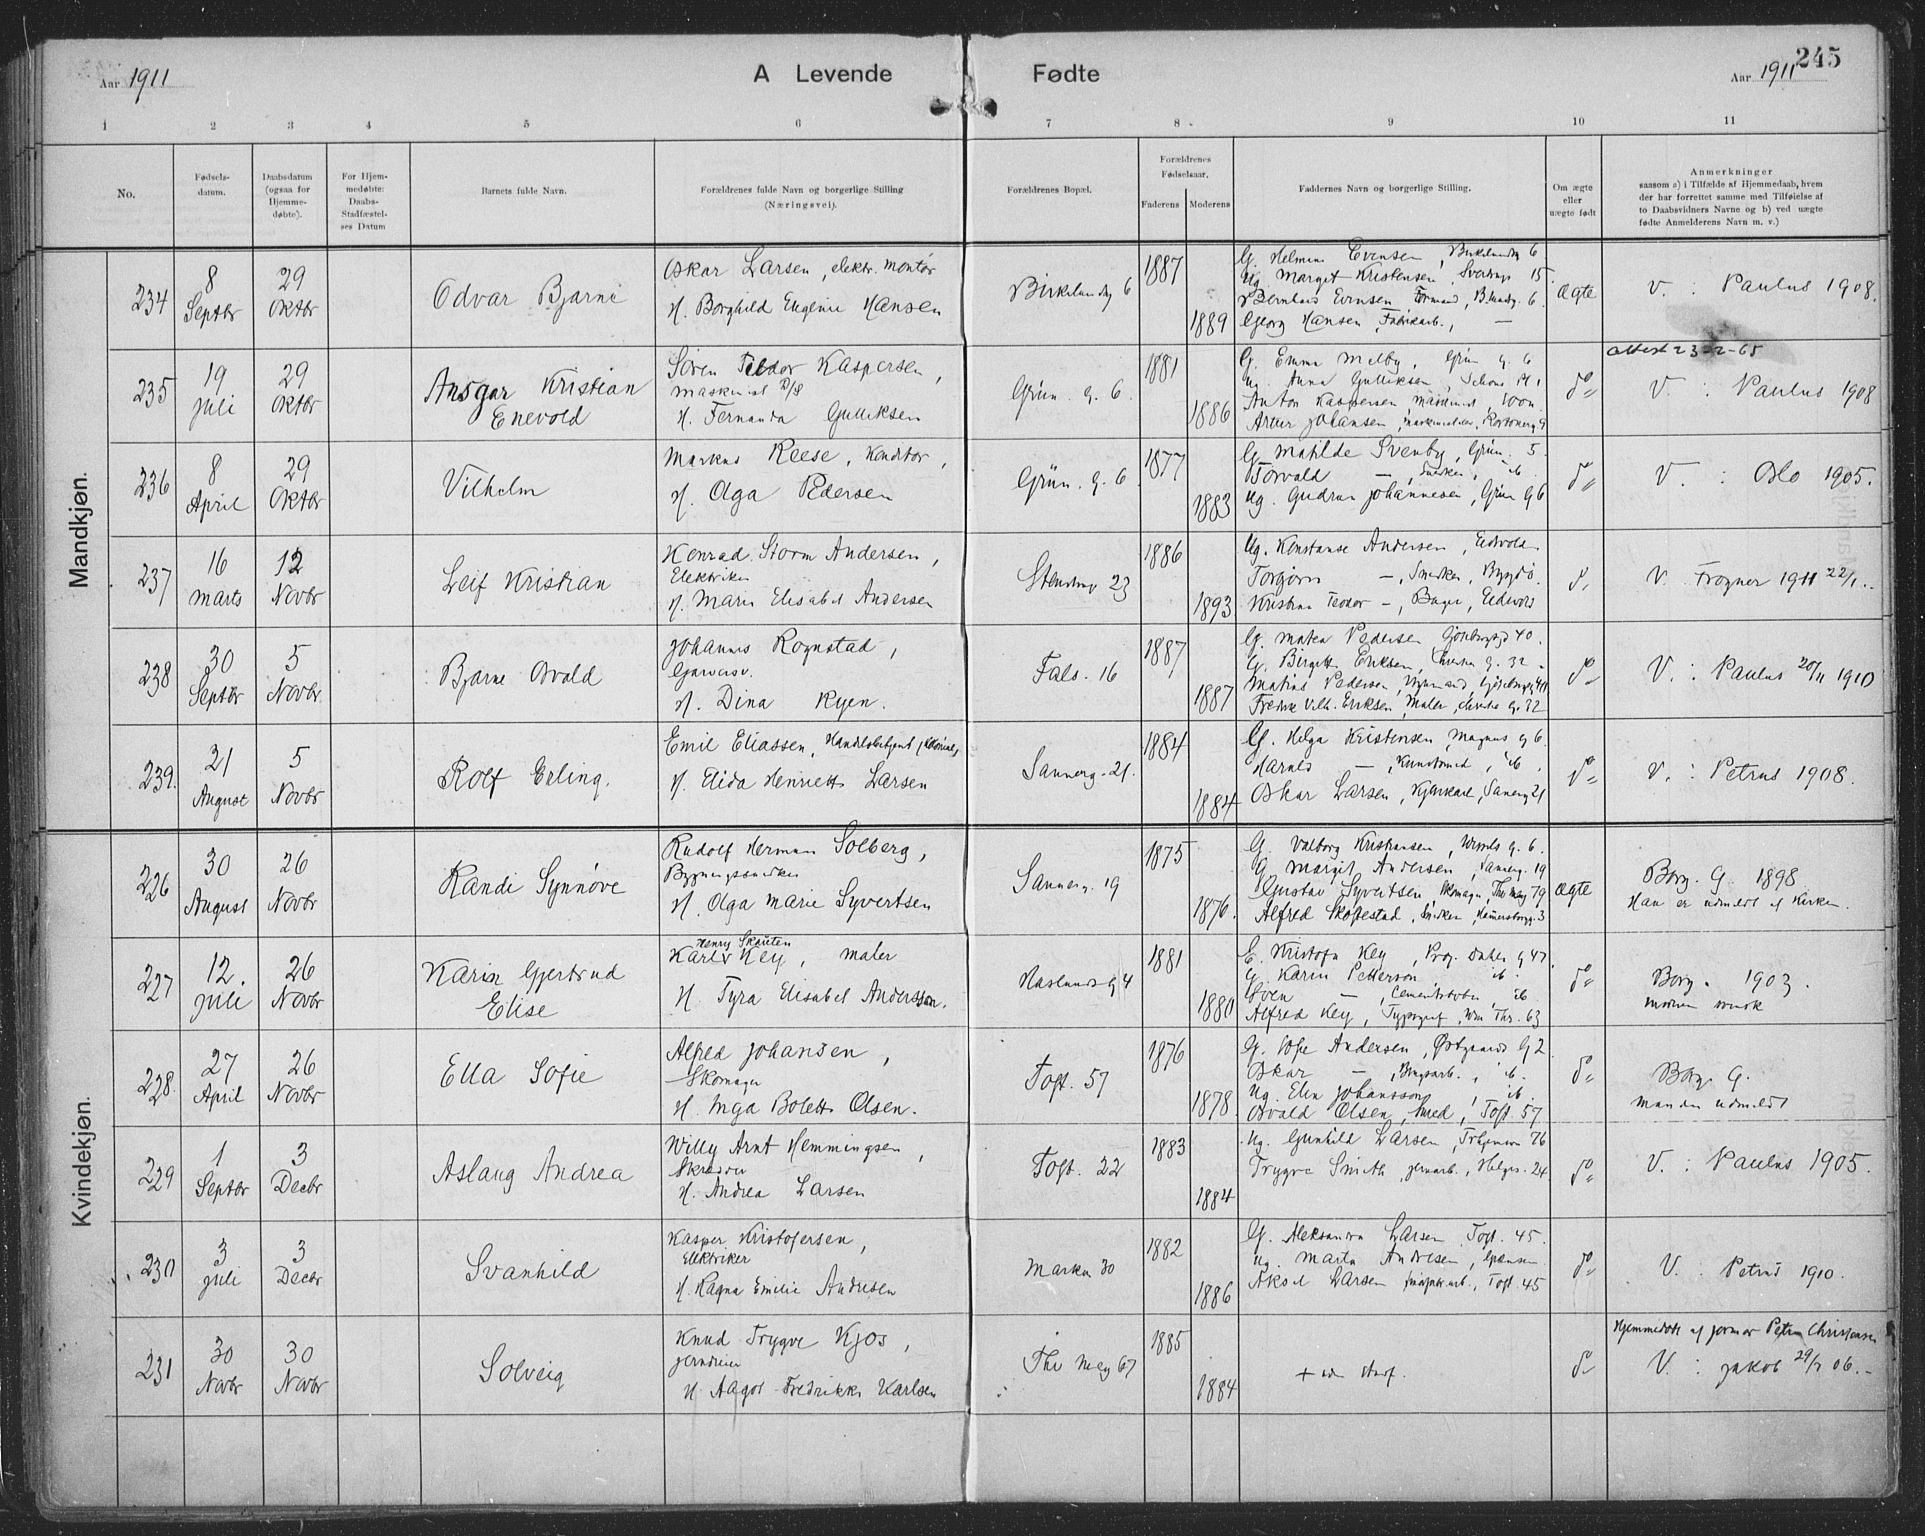 Aar 1911
A Levende Fødte
Aar 1911
245
1 2 3 4 5 6 7 8 9 10 11
No.
Fødsels-
datum.
Daabsdatum
(ogsaa for
Hjemme-
døbte).
For Hjem-
medøbte:
Daabs-
Stadfæstel-
ses Datum
Barnets fulde Navn.
Forældrenes fulde Navn og borgerlige Stilling
(Næringsvei).
Forældrenes Bopæl.
Forældrenes
Fødselsaar.
Faderens
Moderens
Faddernes Navn og borgerlige Stilling.
Om ægte
eller
uægte født
Anmerkninger
saasom a) i Tilfælde af Hjemmedaab, hvem
der har forrettet samme med Tilføielse af
to Daabsvidners Navne og b) ved uægte
fødte Anmelderens Navn m. v.)
Mandkjøn.
234
8
Septbr
29
Oktbr
Odvar Bjarne
Oskar Larsen, elektr. montør
H. Borghild Eugenie Hansen
Birkelundg 6
1887
1889
G. Helmine Evensen, Birkelundg 6
Ug Margit Kristensen, 15
Bernhard Evensen Formand, 6.
Georg Hansen, Fabrikarb., —
Ægte
V. : Paulus 1908.
235
19
Juli
29
Oktbr
Ansgar Kristian
Enevold
Søren Teodor Kaspersen,
maskinist D/S
H. Fernanda Gulliksen
Grün. g. 6.
1881
1886
G. Emma Melby, Grün g. 6
Ug. Anna Gulliksen, Schous Pl 1
Anton Kaspersen maskinist,
Artur Johansen,
do
Attest 23-2-65
V. : Paulus 1908
236
8
April
29
Oktbr
Vilhelm
Markus Reese, Konditor,
H. Olga Pedersen
Grün. g. 6
1877
1883
G. Matilde Svenby, Grün. 5.
Torvald —, Snedker, ib.
Ug. Gudrun Johannesen, Grün g 6
do
V. : Oslo 1905.
237
16
Marts
12
Novbr
Leif Kristian
Konrad Storm Andersen,
Elektriker
H. Marie Elisabet Andersen
Stensbrg 23
1886
1893
Ug. Konstanse Andersen, Eidsvold
Torgorn —, Snedker, Bygdø
Kristian Teodor —, Bager, Eidsvold
do
V. Frogner 1911 22/1.
238
30
Septbr
5
Novbr
Bjarne Osvald
Johannes Rognstad,
Garversv.
H. Dina Ryen.
Fals. 16
1887
1887
G. Matea Pedersen 40.
G. Birgitte Eriksen, g. 32
Matias Pedersen,
Fredrik Vilh. Eriksen, Maler, g. 32
do
V. : Paulus 20/11 1910
239.
21
August
5
Novbr
Rolf Erling.
Emil Eliassen, Handelsbetjent (Kolonial)
H. Elida Henriette Larsen
Sannerg. 21.
1884
1884
G. Helga Kristensen, Magnus g 6.
Harald —, Kunstsmed, ib.
Oskar Larsen, Kjørekarl, Sannerg 21
do
V. : Petrus 1908.
Kvindekjøn.
226
30
August
26
Novbr
Randi Synnøve
Rudolf Herman Solberg,
Bygningssnedker
H. Olga Marie Syvertsen
Sannerg. 19
1875
1876.
G. Valborg Kristiansen, g. 6.
G. Margit Andersen, Sannerg. 19
Gustav Syvertsen, Skomager, Thv Mey 79
Alfred Skofestad, Snedker, Hamersborgg. 3
Ægte
Borg. G 1898
Han er udmeldt af Kirken.
227
12.
Juli
26
Novbr
Karin Gjertrud
Elise
Henry Skouten
Karl Key, maler
H. Tyra Elisabet Andersson.
Haslunds g 4
1881
1880
E. Kristofa Key, Prof. Dahls g 47.
G. Karin Petterson ib.
Sven —, Cementstøber, ib
Alfred Key, Typograf, Thr. 63
do
Borg. 1903.
Moren svensk
228.
27
April
26
Novbr
Ella Sofie
Alfred Johansen,
Skomager
H. Inga Bolette Olsen.
Toft. 57
1876
1878.
G. Sofie Andersen, Østgaards g 2
Oskar —, Bygsarb., ib.
Ug. Elin Johansson, ib.
Osvald Olsen, Smed, Toft. 57
do
Borg. G.
Manden udmeldt
229
1
Septbr
3
Decbr
Aslaug Andrea
Willy Arnt Hemmingsen,
Skrædder
H. Andrea Larsen
Toft. 22
1883
1884
Ug. Gunhild Larsen, 76
Trygve Smith, jernarb., Helges. 24
do
V. : Paulus 1905.
230
3
Juli
3
Decbr
Svanhild
Kasper Kristofersen,
Elektriker
H. Ragna Emilie Andresen
Markv 30
1882
1886
G. Aleksandra Larsen Toft. 45.
Ug. Marta Andresen,
Aksel Larsen, Toft. 45
do
V. Petrus 1910.
231
30
Novbr
30
Novbr
Solveig
Knud Trygve Kjos,
Jerndreier
H. Aagot Fredrikke Karlsen
Thv Mey 67
1885
1884
do
Hjemmedøbt af jormor Petra Christensen
V. : Jakob 29/7 06. -